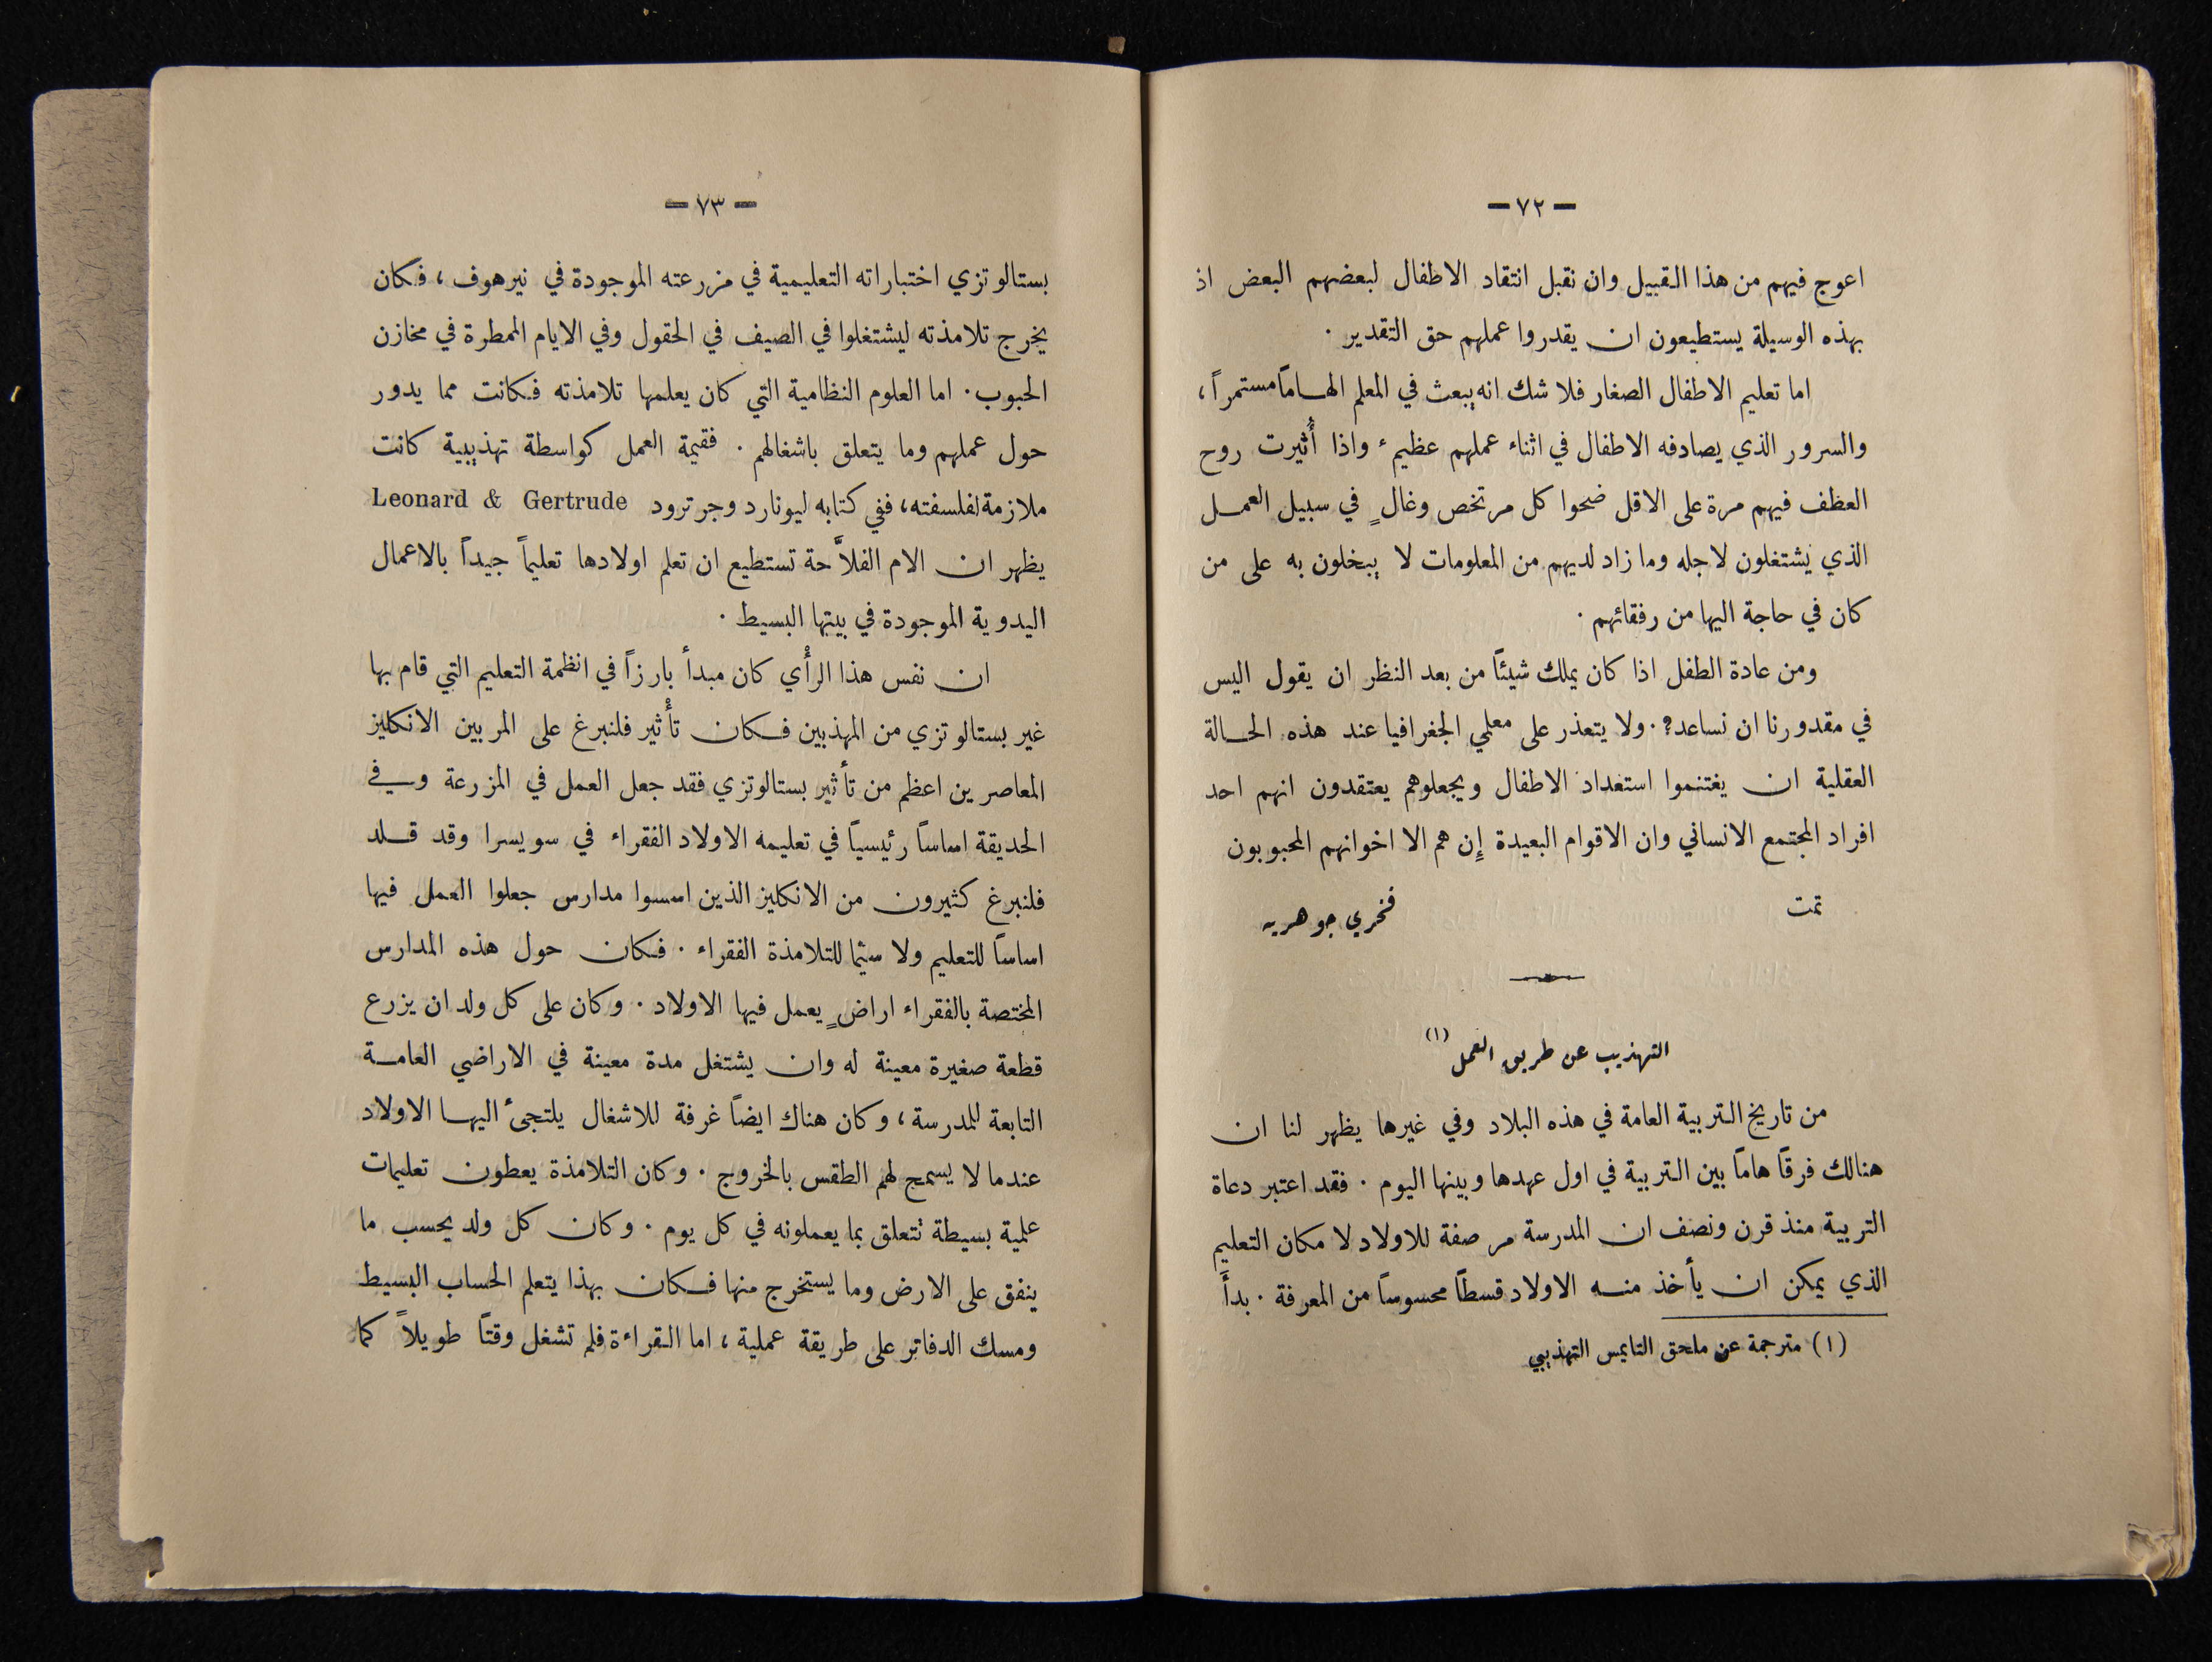 — ٧٢ —
اعوج فيهم من هذا القبيل وان نقبل انتقاد الاطفال لبعضهم البعض اذ
بهذه الوسيلة يستطيعون ان يقدروا عملهم حق التقدير ·
اما تعليم الاطفال الصغار فلا شك انه يبعث في المعلم الهاماً مستمراً ،
والسرور الذي يصادفه الاطفال في اثناء عملهم عظيم ء واذا أُثيرت روح
العظف فيهم مرة على الاقل ضحوا كل مرتخص وغالٍ في سبيل العمل
الذي يشتغلون لاجله وما زاد لديهم من المعلومات لا يبخلون به على من
كان في حاجة اليها من رفقائهم ·
ومن عادة الطفل اذا كان يملك شيئاً من بعد النظر ان يقول اليس
في مقدورنا ان نساعد؟ · ولا يتعذر على معلمي الجغرافيا عند هذه الحالة
العقلية ان يغتنموا استعداد الاطفال ويجعلوهم يعتقدون انهم احد
افراد المجتمع الانساني وان الاقوام البعيدة إِن هم الا اخوانهم المحبوبون
تمت فخري جوهريه
التهذيب عن طريق العمل (١)
من تاريخ التربية العامة في هذه البلاد وفي غيرها يظهر لنا ان
هنالك فرقاً هاماً بين التربية في اول عهدها وبينها اليوم · فقد اعتبر دعاة
التربية منذ قرن ونصف ان المدرسة مرصفة للاولاد لا مكان التعليم
الذي يمكن ان يأخذ منه الاولاد قسطاً محسوساً من المعرفة · بدأَ
(١) مترجمة عن ملحق التايمس التهذيبي
— ٧٣ —
بستالوتزي اختباراته التعليمية في مزرعته الموجودة في نيرهوف ، فكان
يخرج تلامذته ليشتغلوا في الصيف في الحقول وفي الايام الممطرة في مخازن
الحبوب · اما العلوم النظامية التي كان يعلمها تلامذته فكانت مما يدور
حول عملهم وما يتعلق باشغالهم · فقيمة العمل كواسطة تهذيبية كانت
ملازمة لفلسفته ، ففي كتابه ليونارد وجرترود Leonard & Gertrude
يظهر ان الام الفلاَّحة تستطيع ان تعلم اولادها تعليماً جيداً بالاعمال
اليدوية الموجودة في بيتها البسيط ·
ان نفس هذا الرأْي كان مبدأ بارزاً في انظمة التعليم التي قام بها
غير بستالوتزي من المهذبين فكان تأْثير فلنبرغ على المربين الانكليز
المعاصرين اعظم من تأثير بستالوتزي فقد جعل العمل في المزرعة وفي
الحديقة اساساً رئيسياً في تعليمه الاولاد الفقراء في سويسرا وقد قلد
فلنبرغ كثيرون من الانكليز الذين اسسوا مدارس جعلوا العمل فيها
اساساً للتعليم ولا سيما للتلامذة الفقراء · فكان حول هذه المدارس
المختصة بالفقراء اراضٍ يعمل فيها الاولاد · وكان على كل ولد ان يزرع
قطعة صغيرة معينة له وان يشتغل مدة معينة في الاراضي العامة
التابعة للمدرسة ، وكان هناك ايضاً غرفة للاشغال يلتجئ اليها الاولاد
عندما لا يسمح لهم الطقس بالخروج · وكان التلامذة يعطون تعليمات
علمية بسيطة تتعلق بما يعملونه في كل يوم · وكان كل ولد يحسب ما
ينفق على الارض وما يستخرج منها فكان بهذا يتعلم الحساب البسيط
ومسك الدفاتر على طريقة عملية ، اما القراءة فلم تشغل وقتاً طويلاً كما